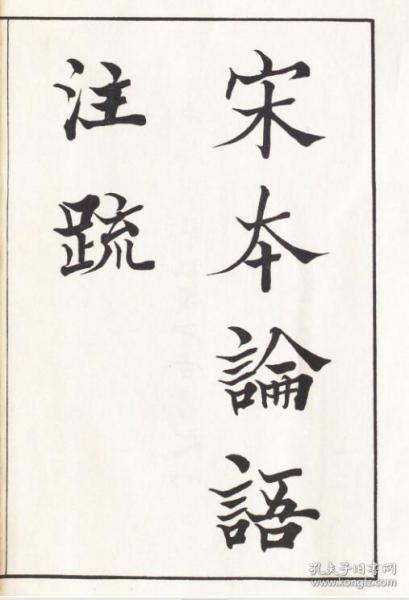 宋本論語
注疏
孔夫子旧书网
www.kongfz.com